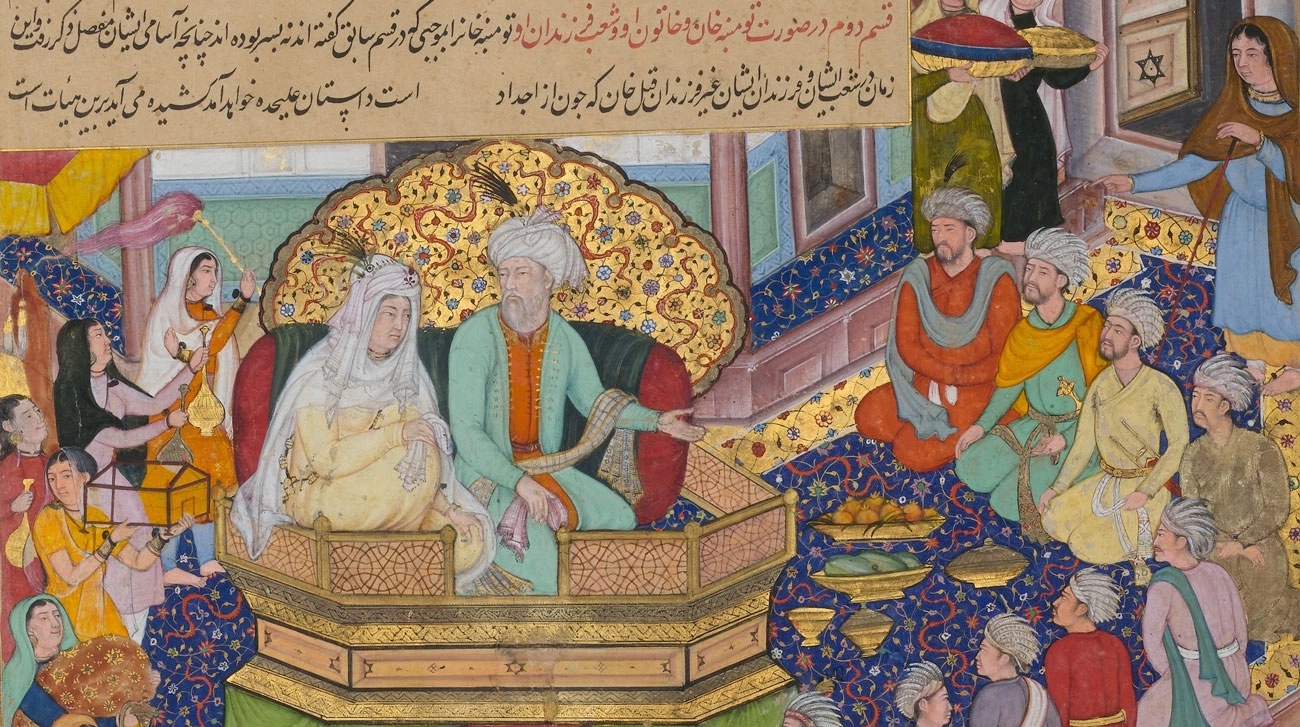 قسم دوم در صورت تومنه خان و خاتون او و شعب فرزندان او تومنه خان را بموجبی که در قسم سابق گفته اند نه پسر بوده اند چنانچه اسامی ایشان مفصل ذکر رفت و این
زمان در شعب ایشان و فرزندان ایشان غیر فرزندان قبل خان که چون از اجداد است داستان علیحده خواهد آمد کشیده می آید برین هیأت است